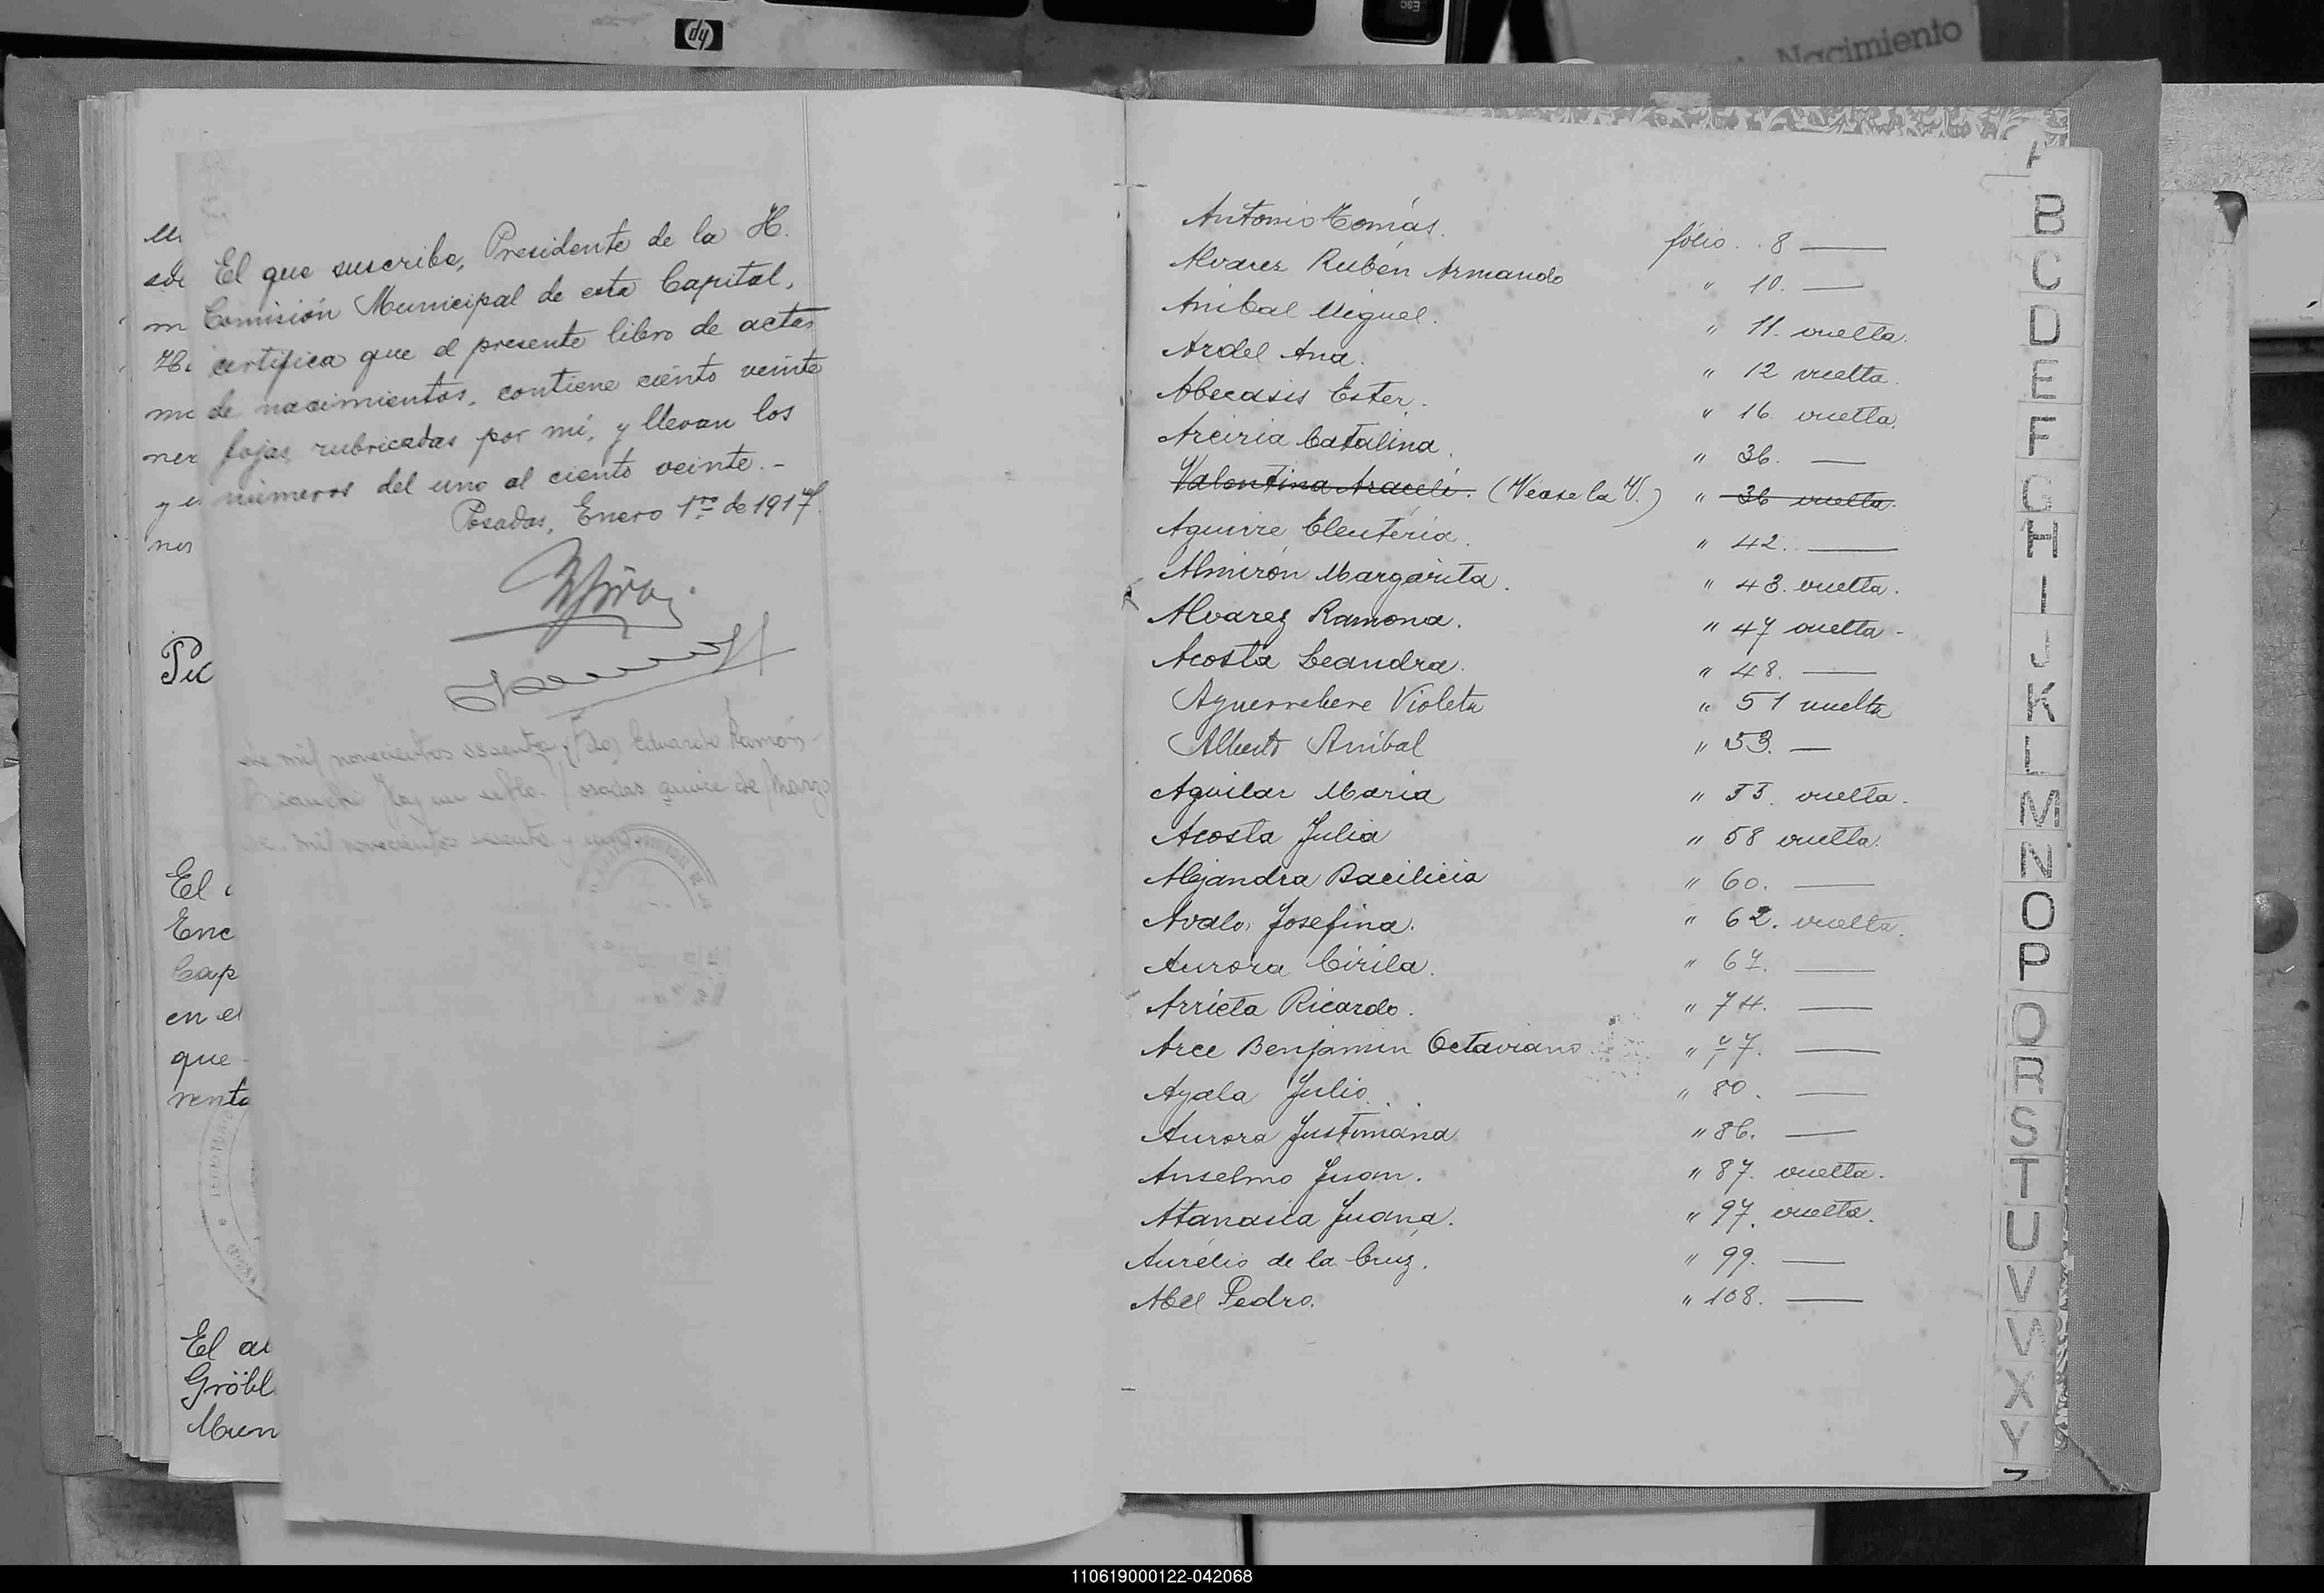 hp
Esc
Nacimiento
El que suscribe, Presidente de la H.
Comisión Municipal de esta Capital,
certifica que el presente libro de actas
de nacimientos, contiene ciento veinte
fojas rubricadas por mí, y llevan los
números del uno al ciento veinte.-
Posadas, Enero 1ro de 1917.
de mil novecientos sesenta Eduardo Ramón
quince de Marzo
de mil novecientos sesenta y uno
Pic
El
Enc
Cap
en el
que
renta
El
Gröbl
Mun
Antonio Tomás. fólio . . 8 —
Alvarez Rubén Armando " 10. —
Anibal Miguel. " 11. vuelta.
Ardel Ana. " 12 vuelta.
Abecasis Ester. " 16. vuelta.
Arciria Catalina. " 36. —
Valentina Araceli. (Vease la V.) " 36 vuelta.
Aguirre Eleuteria. " 42. —
Almirón Margarita. " 43. vuelta.
Alvarez Ramona. " 47 vuelta -
Acosta Leandra. " 48. —
Aguerrebere Violeta " 51 vuelta
Alberto Anibal " 53. —
Aguilar Maria " 53. vuelta.
Acosta Julia " 58 vuelta.
Alejandra Bacilicia " 60. —
Avalo, Josefina. " 62. vuelta.
Aurora Cirila. " 67. —
Arrieta Ricardo. " 74. —
Arce Benjamin Octaviano " 77. —
Ayala Julio. " 80. —
Aurora Justiniana " 86. —
Anselmo Juan. " 87. vuelta.
Atanasia Juana. " 97. vuelta.
Aurelio de la Cruz. " 99. —
Abel Pedro. " 108. —
B
C
D
E
F
G
H
I
J
K
L
M
N
O
P
Q
R
S
T
U
V
W
X
Y
110619000122-042068